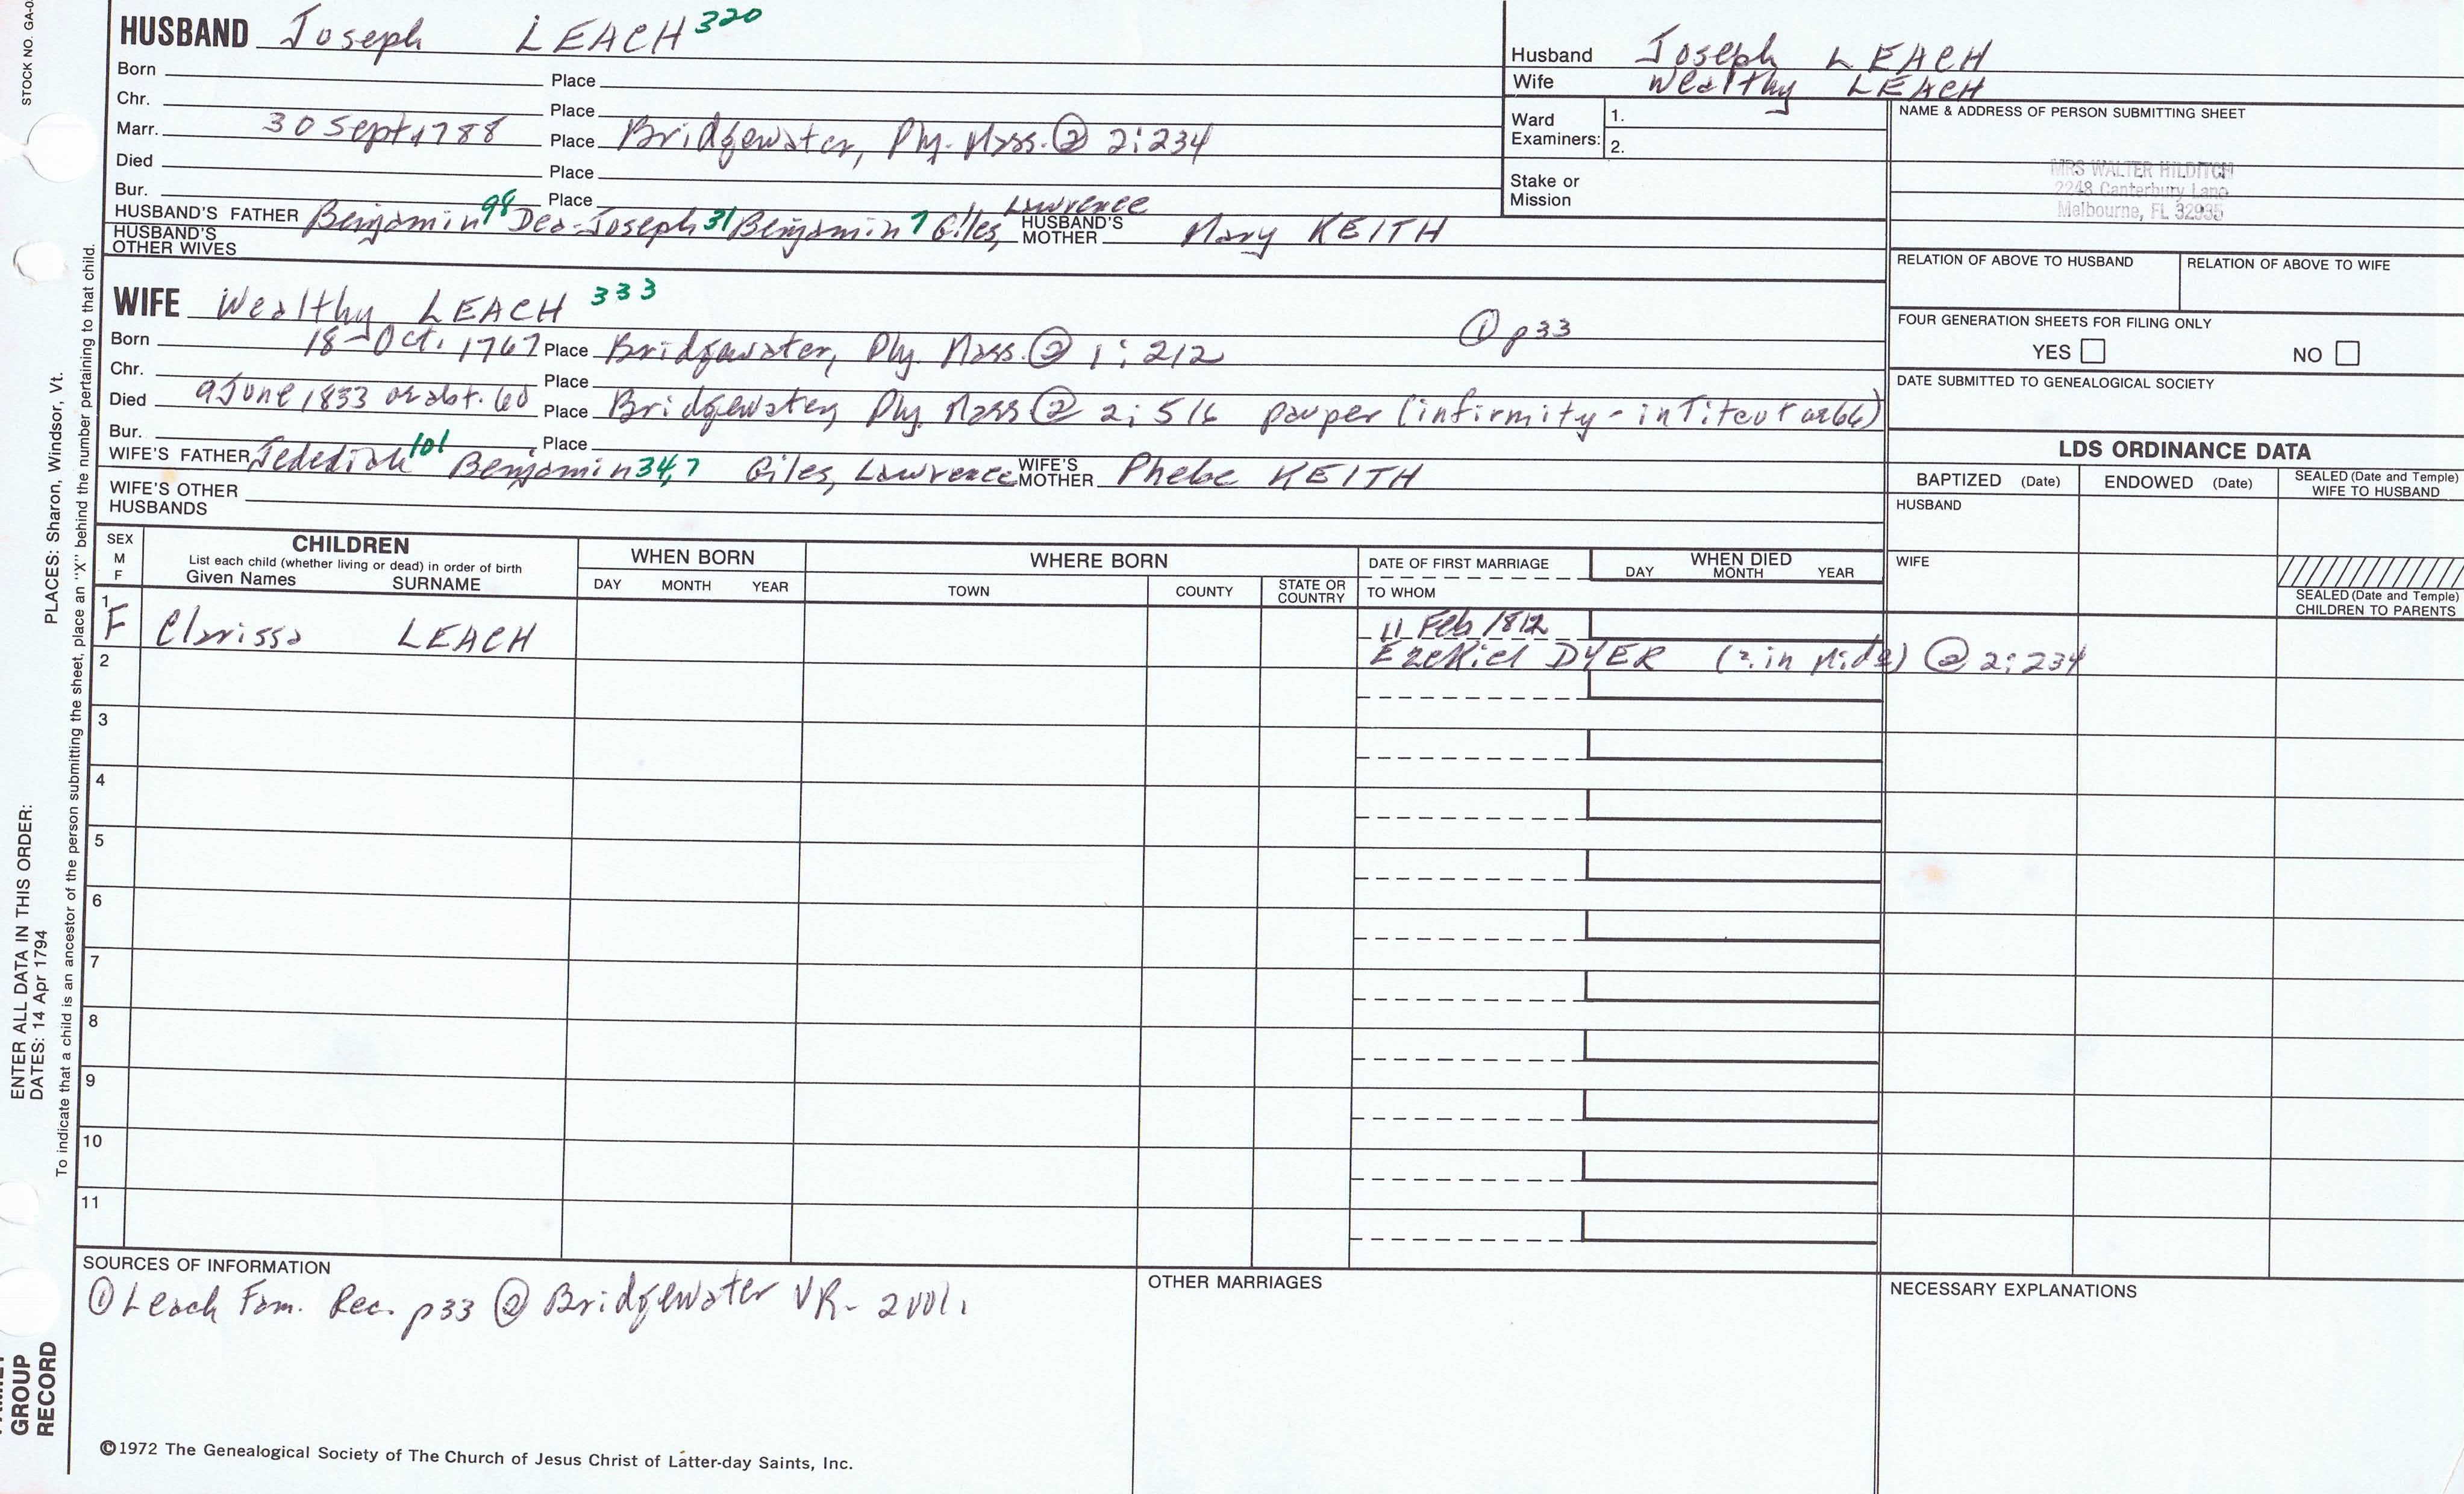 STOCK NO. GA-0
HUSBAND Joseph LEACH 320
Born Place
Chr. Place
Marr. 30 Sept 1788 Place Bridgewater, Ply. Mass. ② 2:234
Died Place
Bur. Place
HUSBAND'S FATHER Benjamin 98 Dea-Joseph 31 Benjamin 7 Giles, Lawrence HUSBAND'S MOTHER Mary KEITH
HUSBAND'S OTHER WIVES
Husband Joseph LEACH
Wife Wealthy LEACH
Ward Examiners: 1.
2.
Stake or Mission
NAME & ADDRESS OF PERSON SUBMITTING SHEET
MRS WALTER HILDITCH
2248 Canterbury Lane
Melbourne, FL 32935
RELATION OF ABOVE TO HUSBAND RELATION OF ABOVE TO WIFE
FOUR GENERATION SHEETS FOR FILING ONLY
YES NO
DATE SUBMITTED TO GENEALOGICAL SOCIETY
WIFE Wealthy LEACH 333
① p33
Born 18 Oct. 1767 Place Bridgewater, Ply. Mass. ② 1:212
Chr. Place
Died 9 June 1833 or abt. 60 Place Bridgewater, Ply. Mass ② 2:516 pauper (infirmity -
Bur. Place
WIFE'S FATHER Jedediah 101 Benjamin 34,7 Giles, Lawrence WIFE'S MOTHER Phebe KEITH
WIFE'S OTHER HUSBANDS
LDS ORDINANCE DATA
BAPTIZED (Date) ENDOWED (Date) SEALED (Date and Temple) WIFE TO HUSBAND
HUSBAND
WIFE
SEALED (Date and Temple) CHILDREN TO PARENTS
SEX M F
CHILDREN
List each child (whether living or dead) in order of birth
Given Names SURNAME
WHEN BORN
DAY MONTH YEAR
WHERE BORN
TOWN COUNTY STATE OR COUNTRY
DATE OF FIRST MARRIAGE
TO WHOM
WHEN DIED
DAY MONTH YEAR
1 F Clarissa LEACH 11 Feb 1812
Ezekiel DYER ② 2:234
2
3
4
5
6
7
8
9
10
11
SOURCES OF INFORMATION
① Leach Fam. Rec. p33 ② Bridgewater VR - 2 vol.
OTHER MARRIAGES
NECESSARY EXPLANATIONS
©1972 The Genealogical Society of The Church of Jesus Christ of Latter-day Saints, Inc.
ENTER ALL DATA IN THIS ORDER:
DATES: 14 Apr 1794 PLACES: Sharon, Windsor, Vt.
To indicate that a child is an ancestor of the person submitting the sheet, place an "X" behind the number pertaining to that child.
GROUP
RECORD